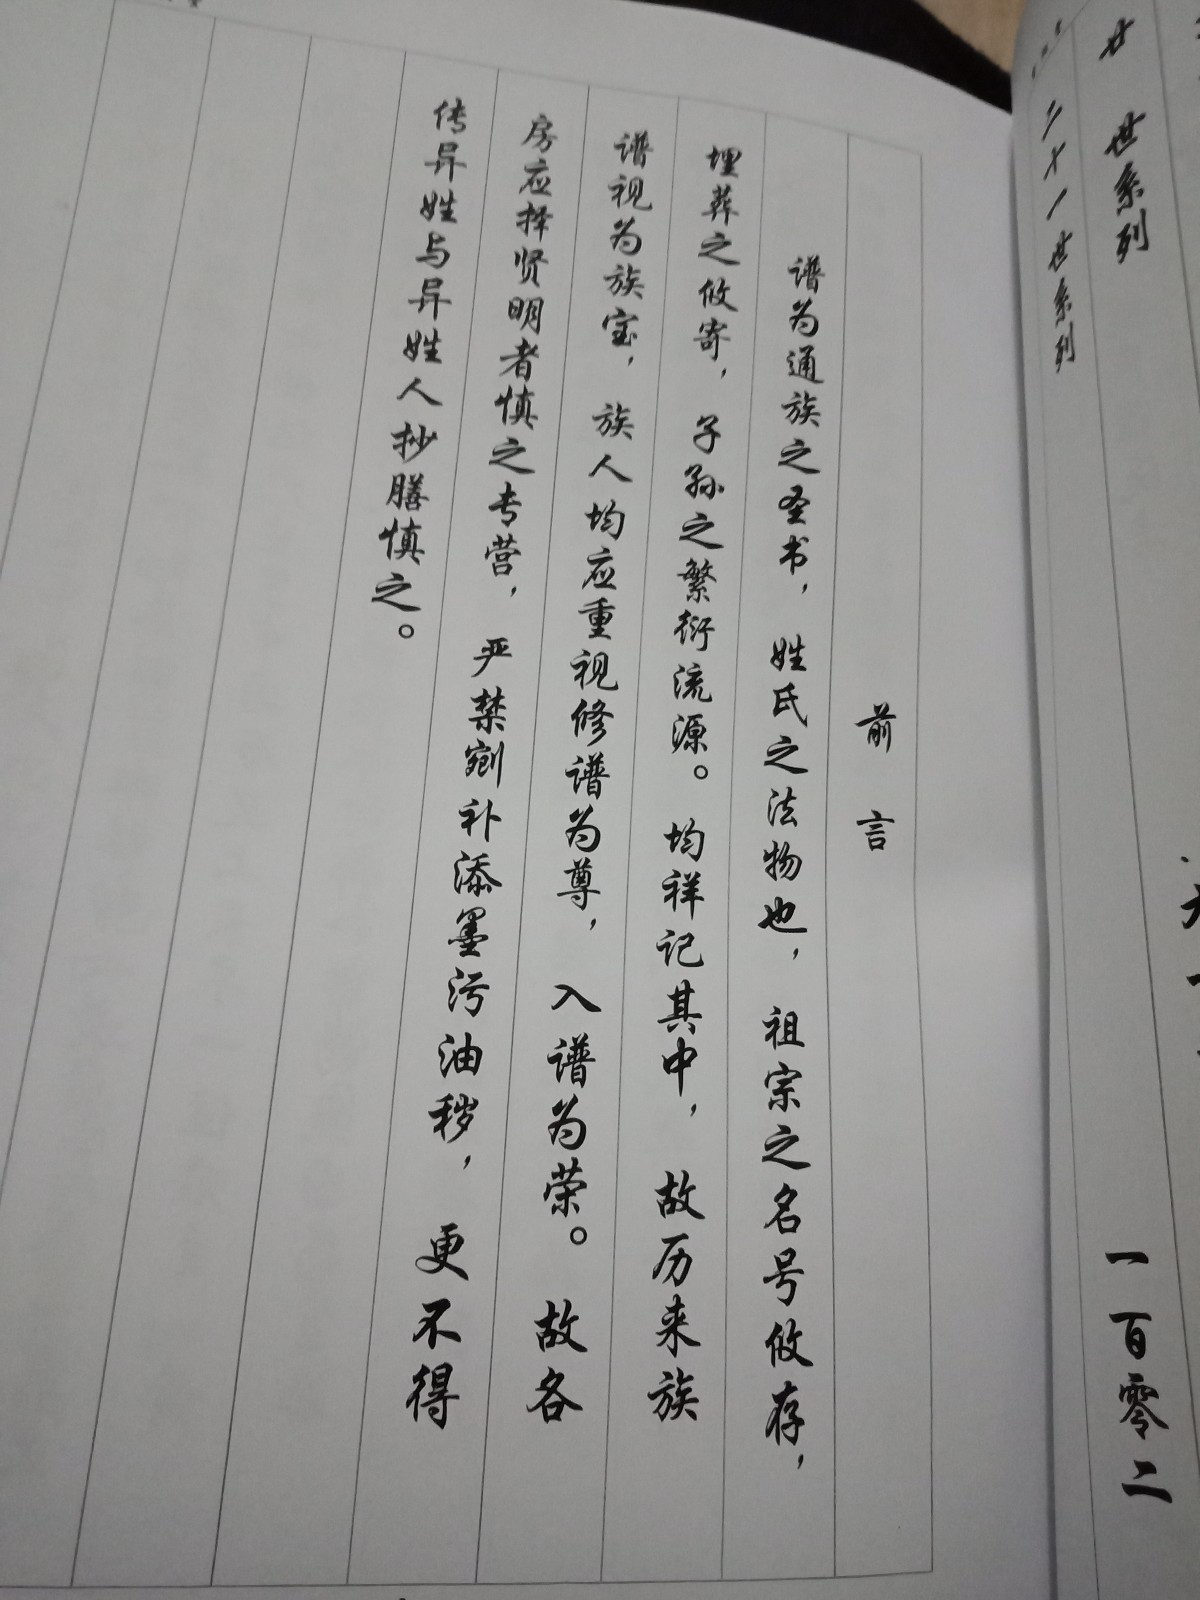 廿世系列
二十一世系列
一百零二
前言
谱为通族之圣书，姓氏之法物也，祖宗之名号攸存，
埋葬之攸寄，子孙之繁衍流源。均祥记其中，故历来族
谱视为族宝，族人均应重视修谱为尊，入谱为荣。故各
房应择贤明者慎之专营，严禁剜补添墨污油秽，更不得
传异姓与异姓人抄膳慎之。